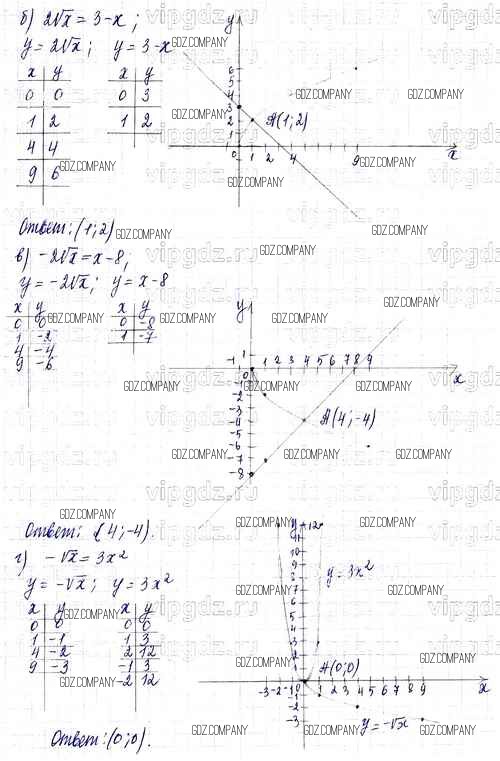 б) 2√x = 3-x ;
y = 2√x ; y = 3-x
x y x y
0 0 0 3
1 2 1 2
4 4
9 6
y
6
5
4
3
2
1
A(1;2)
0 1 2 4 9 x
Ответ: (1;2)
в) -2√x = x-8,
y = -2√x ; y = x-8
x y x y
0 0 0 -8
1 -2 1 -7
4 -4
9 -6
y
1
-1 0 1 2 3 4 5 6 7 8 9 x
-1
-2
-3
-4
-5
-6
-7
-8
A(4;-4)
Ответ: (4;-4).
г) -√x = 3x²
y = -√x ; y = 3x²
x y x y
0 0 0 0
1 -1 1 3
4 -2 2 12
9 -3 -1 3
-2 12
y 12
11
10
9
8
7
6
5
4
3
2
1
y = 3x²
A(0;0)
-3 -2 -1 0 1 2 3 4 5 6 7 8 9 x
-1
-2
-3
y = -√x
Ответ: (0;0).
GDZ.COMPANY
vipgdz.ru